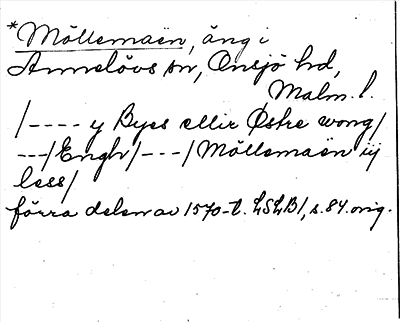 *Möllemaen, äng i
Annelövs sn, Onsjö hd,
Malm. l.
/---- y Byes ellir Østre wong/
---/Enghr/---/Möllemaen iij
less/
förra delen av 1570-t. LSLB1, s. 84. orig.